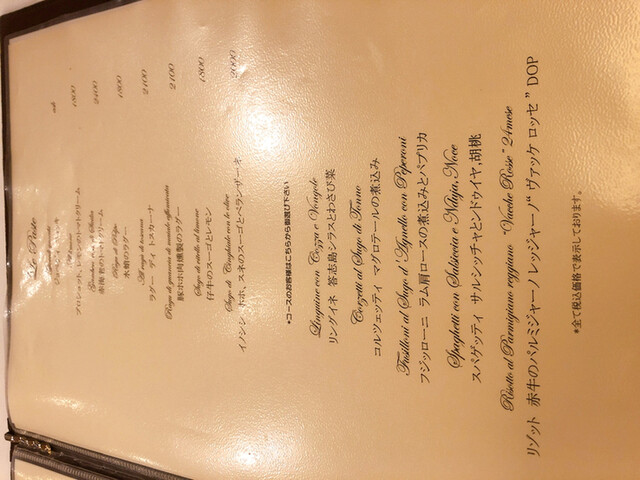 Le Paste
プロシュット、レモンのトマトクリーム 1800
2400
水蛸のラグー 1800
Al ragù di toscana
ラグー ディ トスカーナ 2100
Ragù di guancia di maiale affumicata
豚ホホ肉燻製のラグー 2100
Sugo di vitello al limone
仔牛のスーゴとレモン 1800
Sugo di Cinghiale con le olive
イノシシ・ホホ、スネのスーゴとペランザーネ 2000
*コースのお客様はこちらから御選び下さい
Linguine con Cozze e Vongole
リングイネ 答志島シラスとわさび菜
Corzetti al Sugo di Tonno
コルツェッティ マグロテールの煮込み
Fusilloni al Sugo d'Agnello con Peperoni
フジッローニ ラム肩ロースの煮込みとパプリカ
Spaghetti con Salsiccia e Nduja,Noce
スパゲッティ サルシッチャとンドゥイヤ,胡桃
Risotto al Parmigiano reggiano "Vacche Rosse" 24mese
リゾット 赤牛のパルミジャーノ レッジャーノ"ヴァッケ ロッセ" DOP
*全て税込価格で表示しております。